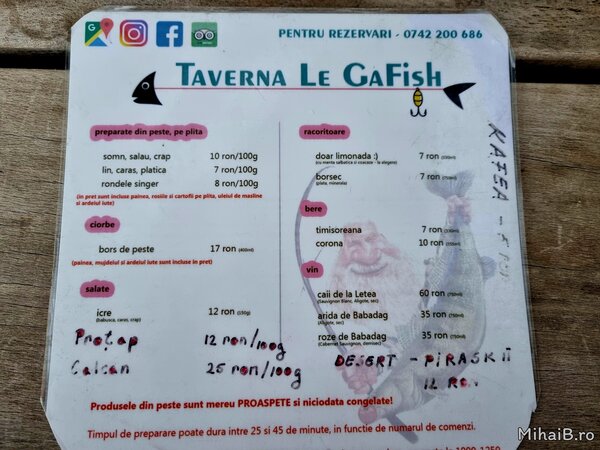 PENTRU REZERVARI - 0742 200 686
TAVERNA LE GAFISH
preparate din peste, pe plita
somn, salau, crap 10 ron/100g
lin, caras, platica 7 ron/100g
rondele singer 8 ron/100g
(in pret sunt incluse painea, rosiile si cartofii pe plita, uleiul de masline
si ardeiul iute)
ciorbe
bors de peste 17 ron (400ml)
(painea, mujdeiul si ardeiul iute sunt incluse in pret)
salate
icre 12 ron (150g)
(babusca, caras, crap)
Proțap 12 ron/100g
Calcan 25 ron/100g
racoritoare
doar limonada :) 7 ron (330ml)
(cu menta salbatica si coacaze - la alegere)
borsec 7 ron (750ml)
(plata, minerala)
bere
timisoreana 7 ron
corona 10 ron
vin
caii de la Letea 60 ron (750ml)
(Sauvignon Blanc, Aligote, sec)
arida de Babadag 35 ron (750ml)
(Aligote, sec)
roze de Babadag 35 ron (750ml)
(Cabernet Sauvignon, demisec)
DESERT - PIRASKII
12 RON
KAFEA - 5
Produsele din peste sunt mereu PROASPETE si niciodata congelate!
Timpul de preparare poate dura intre 25 si 45 de minute, in functie de numarul de comenzi.
MihaiB.ro